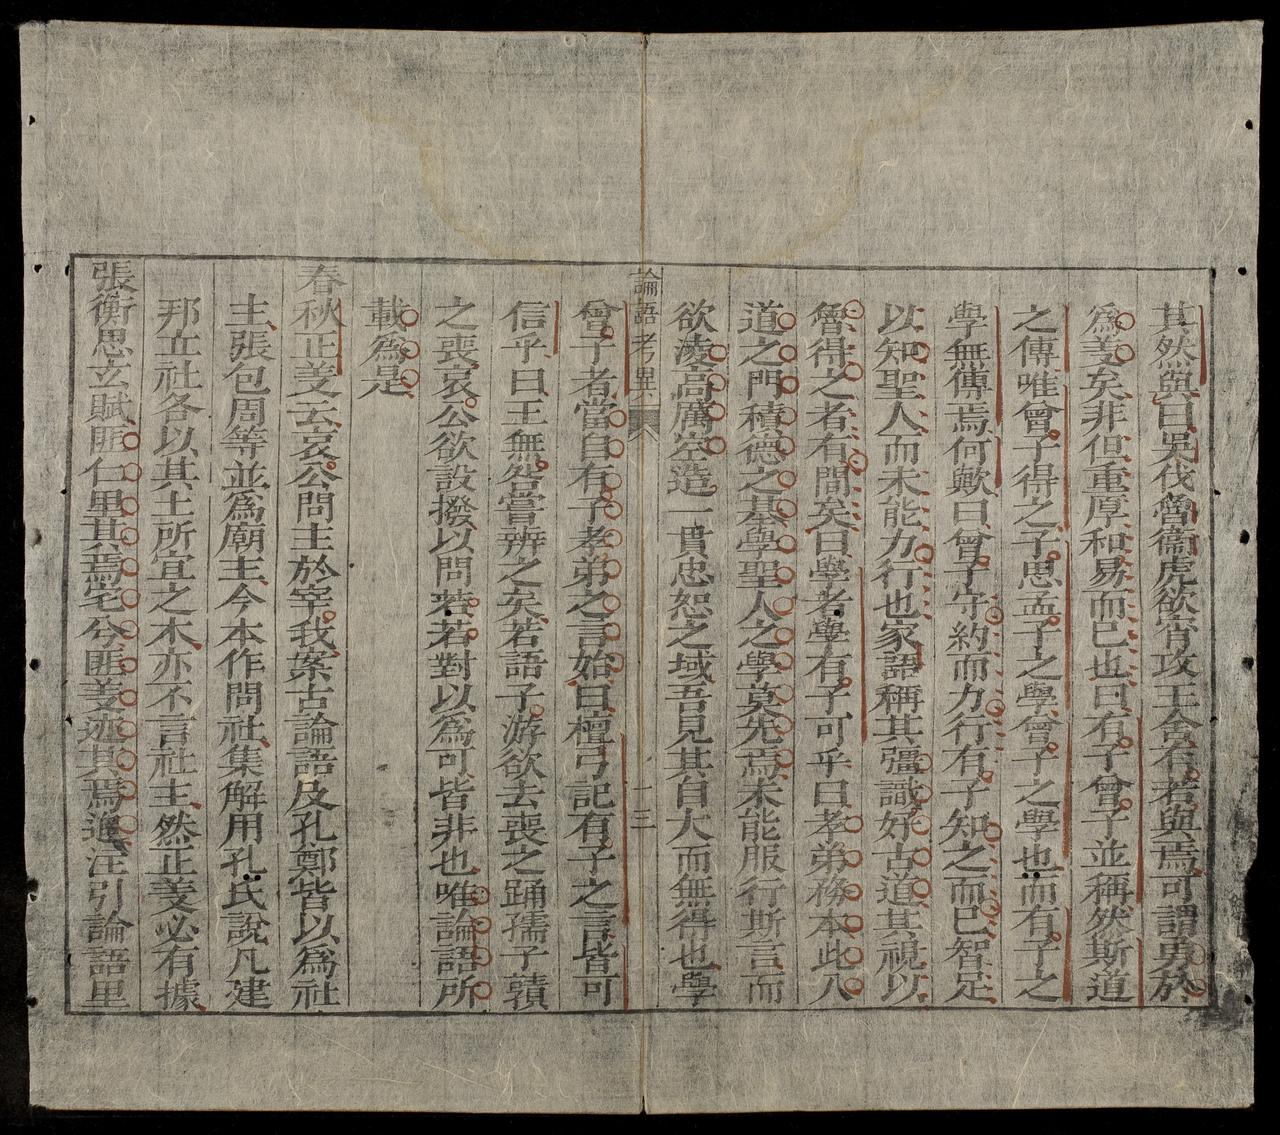 其然與曰吳伐魯微虎欲宵攻王舍有若與焉可謂勇於
爲義矣非但重厚和易而已也曰有子曾子並稱然斯道
之傳唯曾子得之子思孟子之學曾子之學也而有子之
學無傳焉何歟曰曾子守約而力行有子知之而已智足
以知聖人而未能力行也家語稱其彊識好古道其視以
魯得之者有間矣曰學者學有子可乎曰孝弟務本此入
道之門積德之基學聖人之學莫先焉未能服行斯言而
欲凌高厲空造一貫忠恕之域吾見其自大而無得也學
論語考異
十三
曾子者當自有子孝弟之言始曰檀弓記有子之言皆可
信乎曰王無咎嘗辨之矣若語子游欲去喪之踊孺子䵍
之喪哀公欲設撥以問若若對以爲可皆非也唯論語所
載爲是
春秋正義云哀公問主於宰我案古論語及孔鄭皆以爲社
主張包周等並爲廟主今本作問社集解用孔氏說凡建
邦立社各以其土所宜之木亦不言社主然正義必有據
張衡思玄賦匪仁里其焉宅兮匪義迹其焉追注引論語里